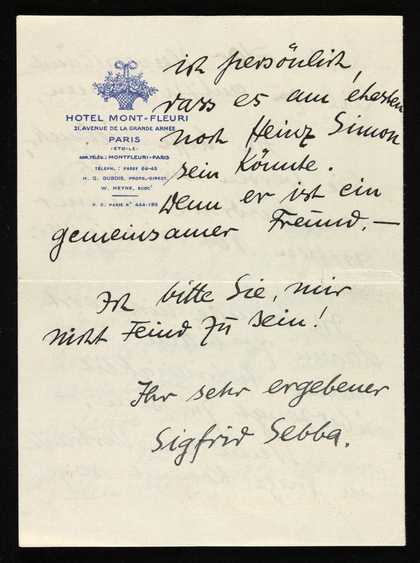 HOTEL MONT-FLEURI
21, AVENUE DE LA GRANDE ARMÉE
PARIS
-ETOILE-
ADR. TÉLÉG.: MONTFLEURI-PARIS
TÉLÉPH.: PASSY 06-45
H. G. DUBOIS, PROPR.-DIRECT.
W. MEYNE, SUCC'
R. C. PARIS N° 444-195
ich persönlich,
dass es am ehesten
noch Heinz Simon
sein könnte.
Denn er ist ein
gemeinsamer Freund. —
Ich bitte Sie, mir
nicht Feind zu sein!
Ihr sehr ergebener
Sigfrid Sebba.